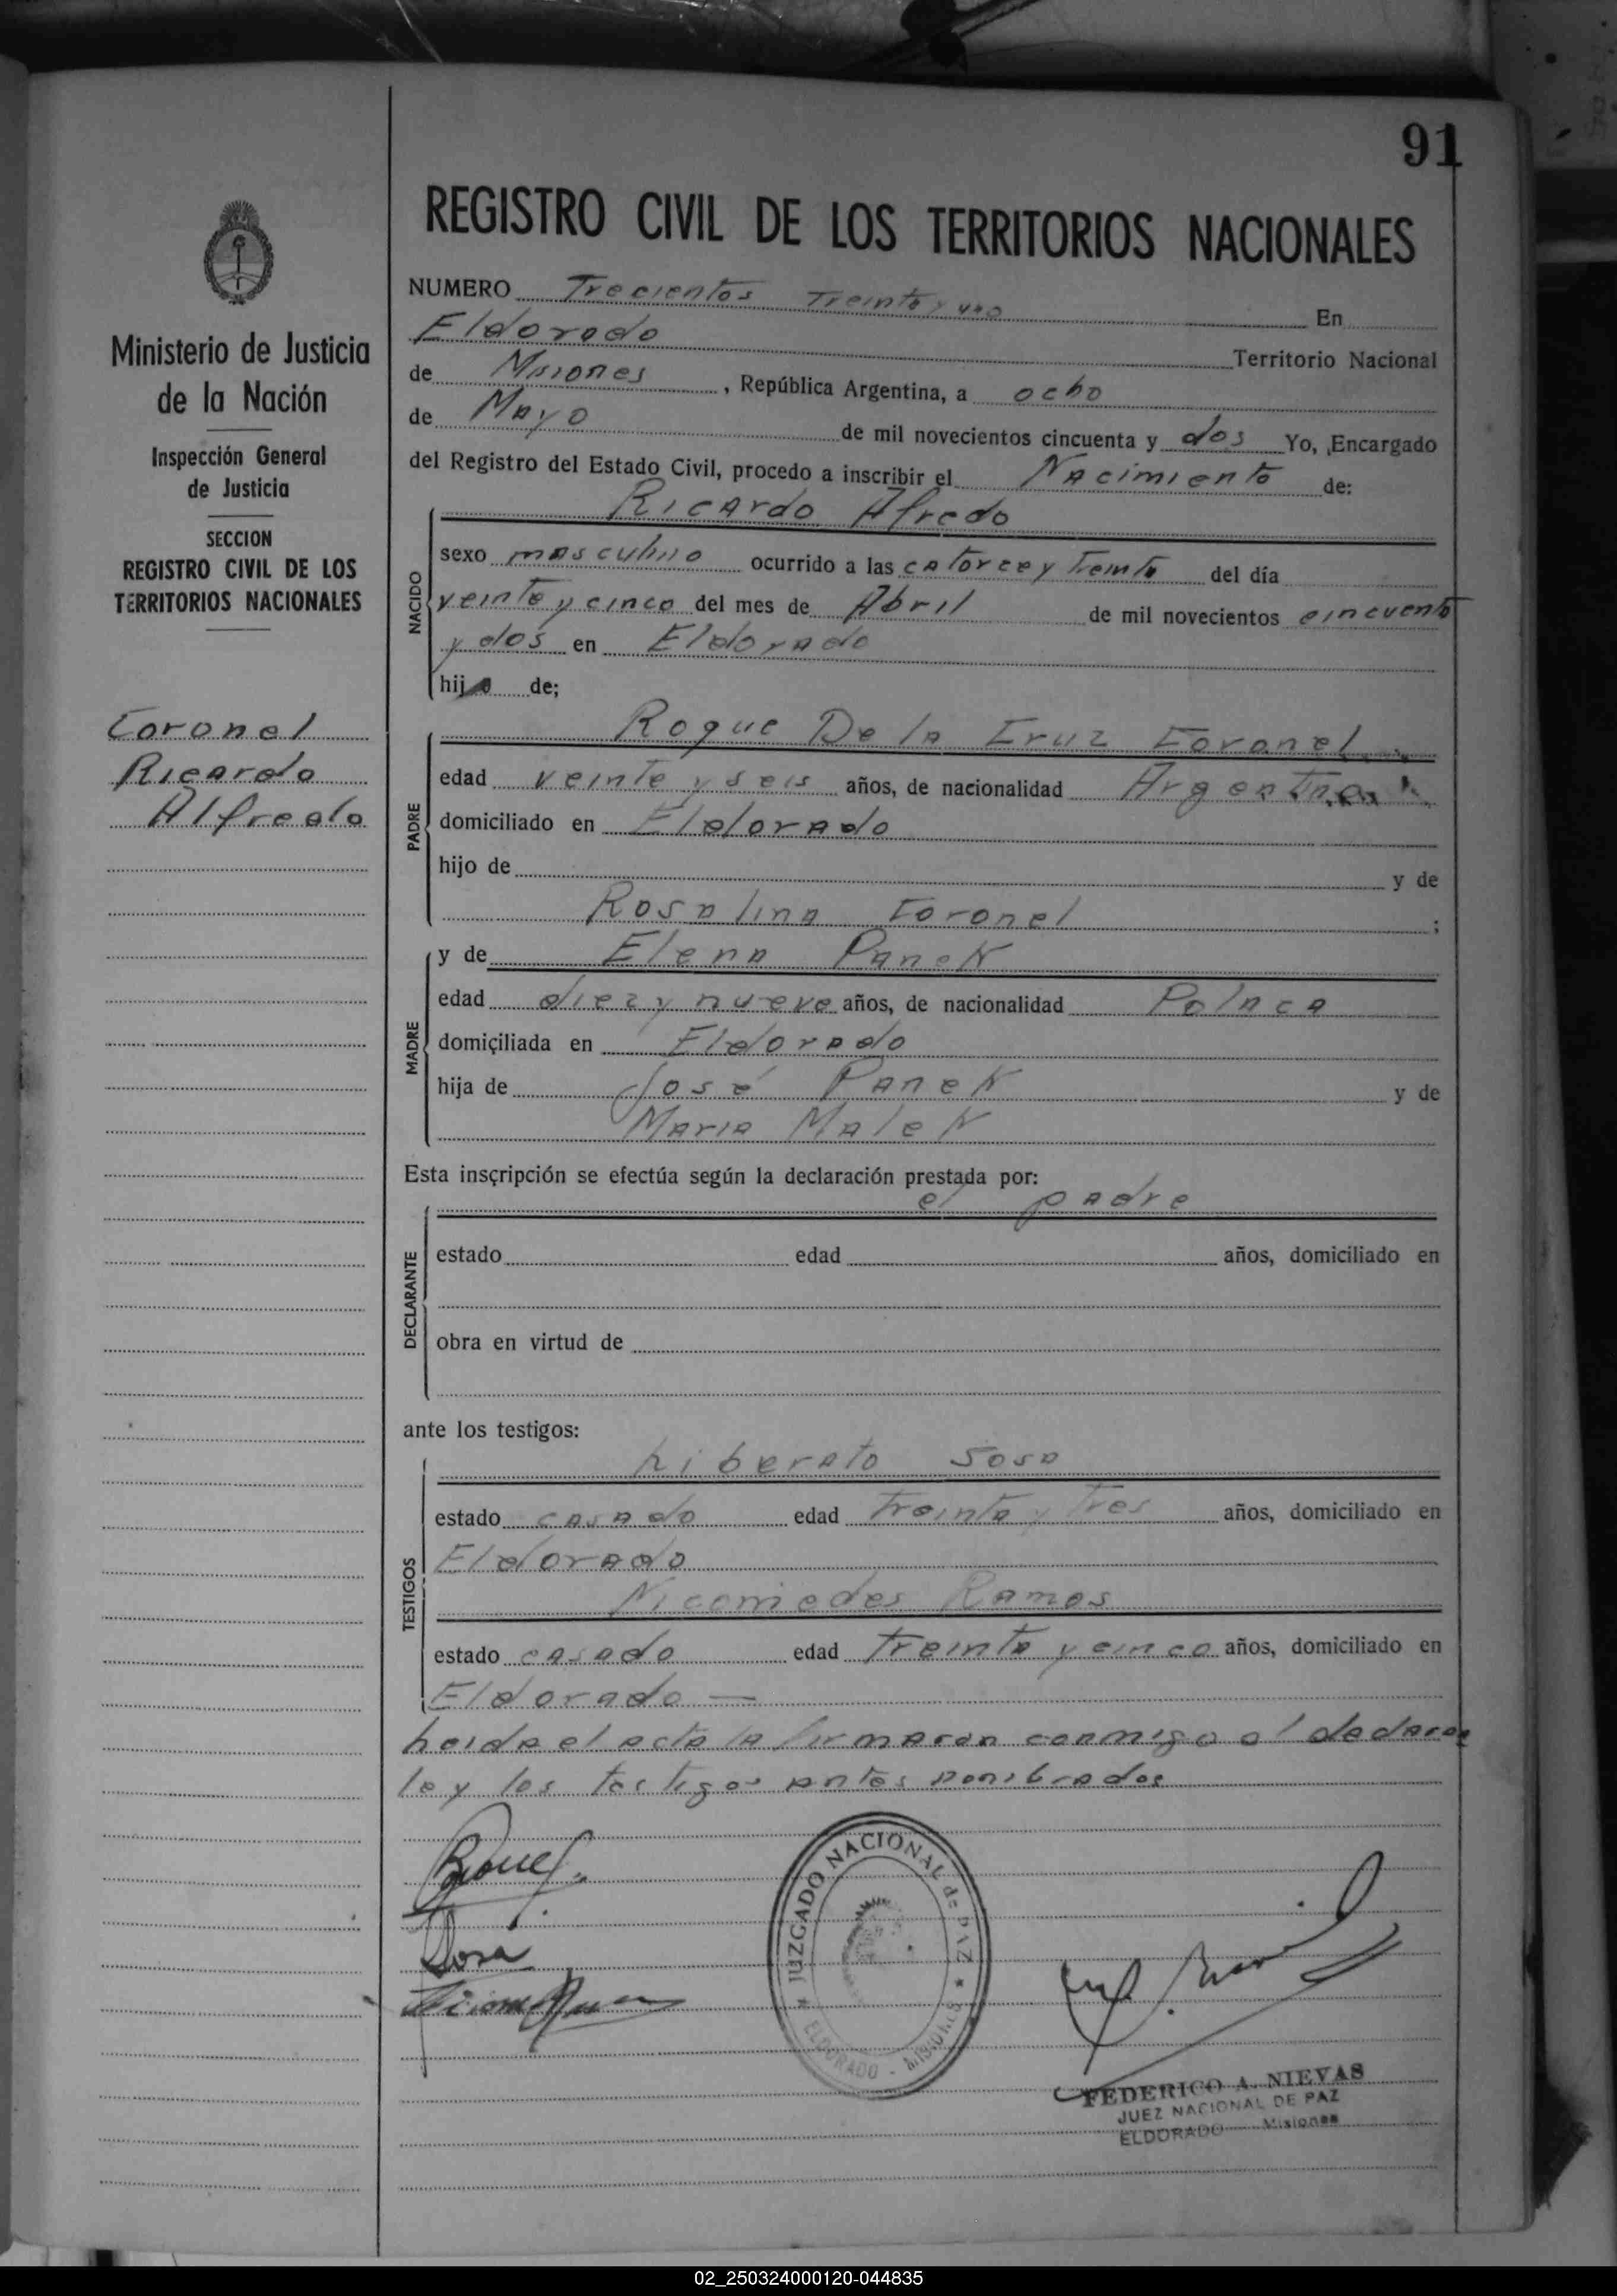 91
REGISTRO CIVIL DE LOS TERRITORIOS NACIONALES
Ministerio de Justicia
de la Nación
Inspección General
de Justicia
SECCION
REGISTRO CIVIL DE LOS
TERRITORIOS NACIONALES
Coronel
Ricardo
Alfredo
NUMERO Trecientos Treinta y uno En
Eldorado Territorio Nacional
de Misiones, República Argentina, a ocho
de Mayo de mil novecientos cincuenta y dos Yo, Encargado
del Registro del Estado Civil, procedo a inscribir el Nacimiento de:
NACIDO
Ricardo Alfredo
sexo masculino ocurrido a las catorce y treinta del día
veinte y cinco del mes de Abril de mil novecientos cincuenta
y dos en Eldorado
hijo de;
PADRE
Roque De la Cruz Coronel
edad veinte y seis años, de nacionalidad Argentina
domiciliado en Eldorado
hijo de y de
Rosalina Coronel ;
MADRE
y de Elena Panek
edad diez y nueve años, de nacionalidad Polaca
domiciliada en Eldorado
hija de José Panek y de
Maria Malek
Esta inscripción se efectúa según la declaración prestada por:
el padre
DECLARANTE
estado edad años, domiciliado en
obra en virtud de
ante los testigos:
TESTIGOS
Liberato Sosa
estado casado edad treinta y tres años, domiciliado en
Eldorado
Nicomedes Ramos
estado casado edad treinta y cinco años, domiciliado en
Eldorado —
Leida el acta la firmaron conmigo el declaran
te y los testigos antes nombrados
Sosa
JUZGADO NACIONAL de PAZ
ELDORADO - MISIONES
FEDERICO A. NIEVAS
JUEZ NACIONAL DE PAZ
ELDORADO Misiones
02_250324000120-044835